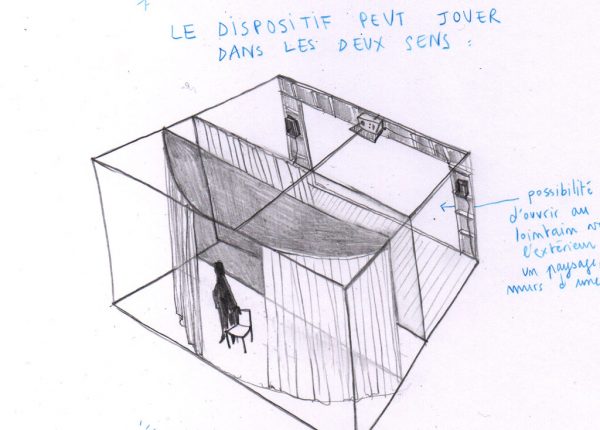 LE DISPOSITIF PEUT JOUER
DANS LES DEUX SENS :
possibilité
d'ouvrir au
lointain
l'extérieur
un paysage
murs d'une